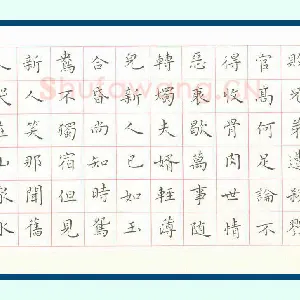 敗兄弟遭殺戮
官高何足論不
得收骨肉世情
惡衰歇萬事随
轉燭夫婿輕薄
兒新人已如玉
合昏尚知時鴛
鴦不獨宿但見
新人笑那聞舊
人哭在山泉水
Shufawang.CN